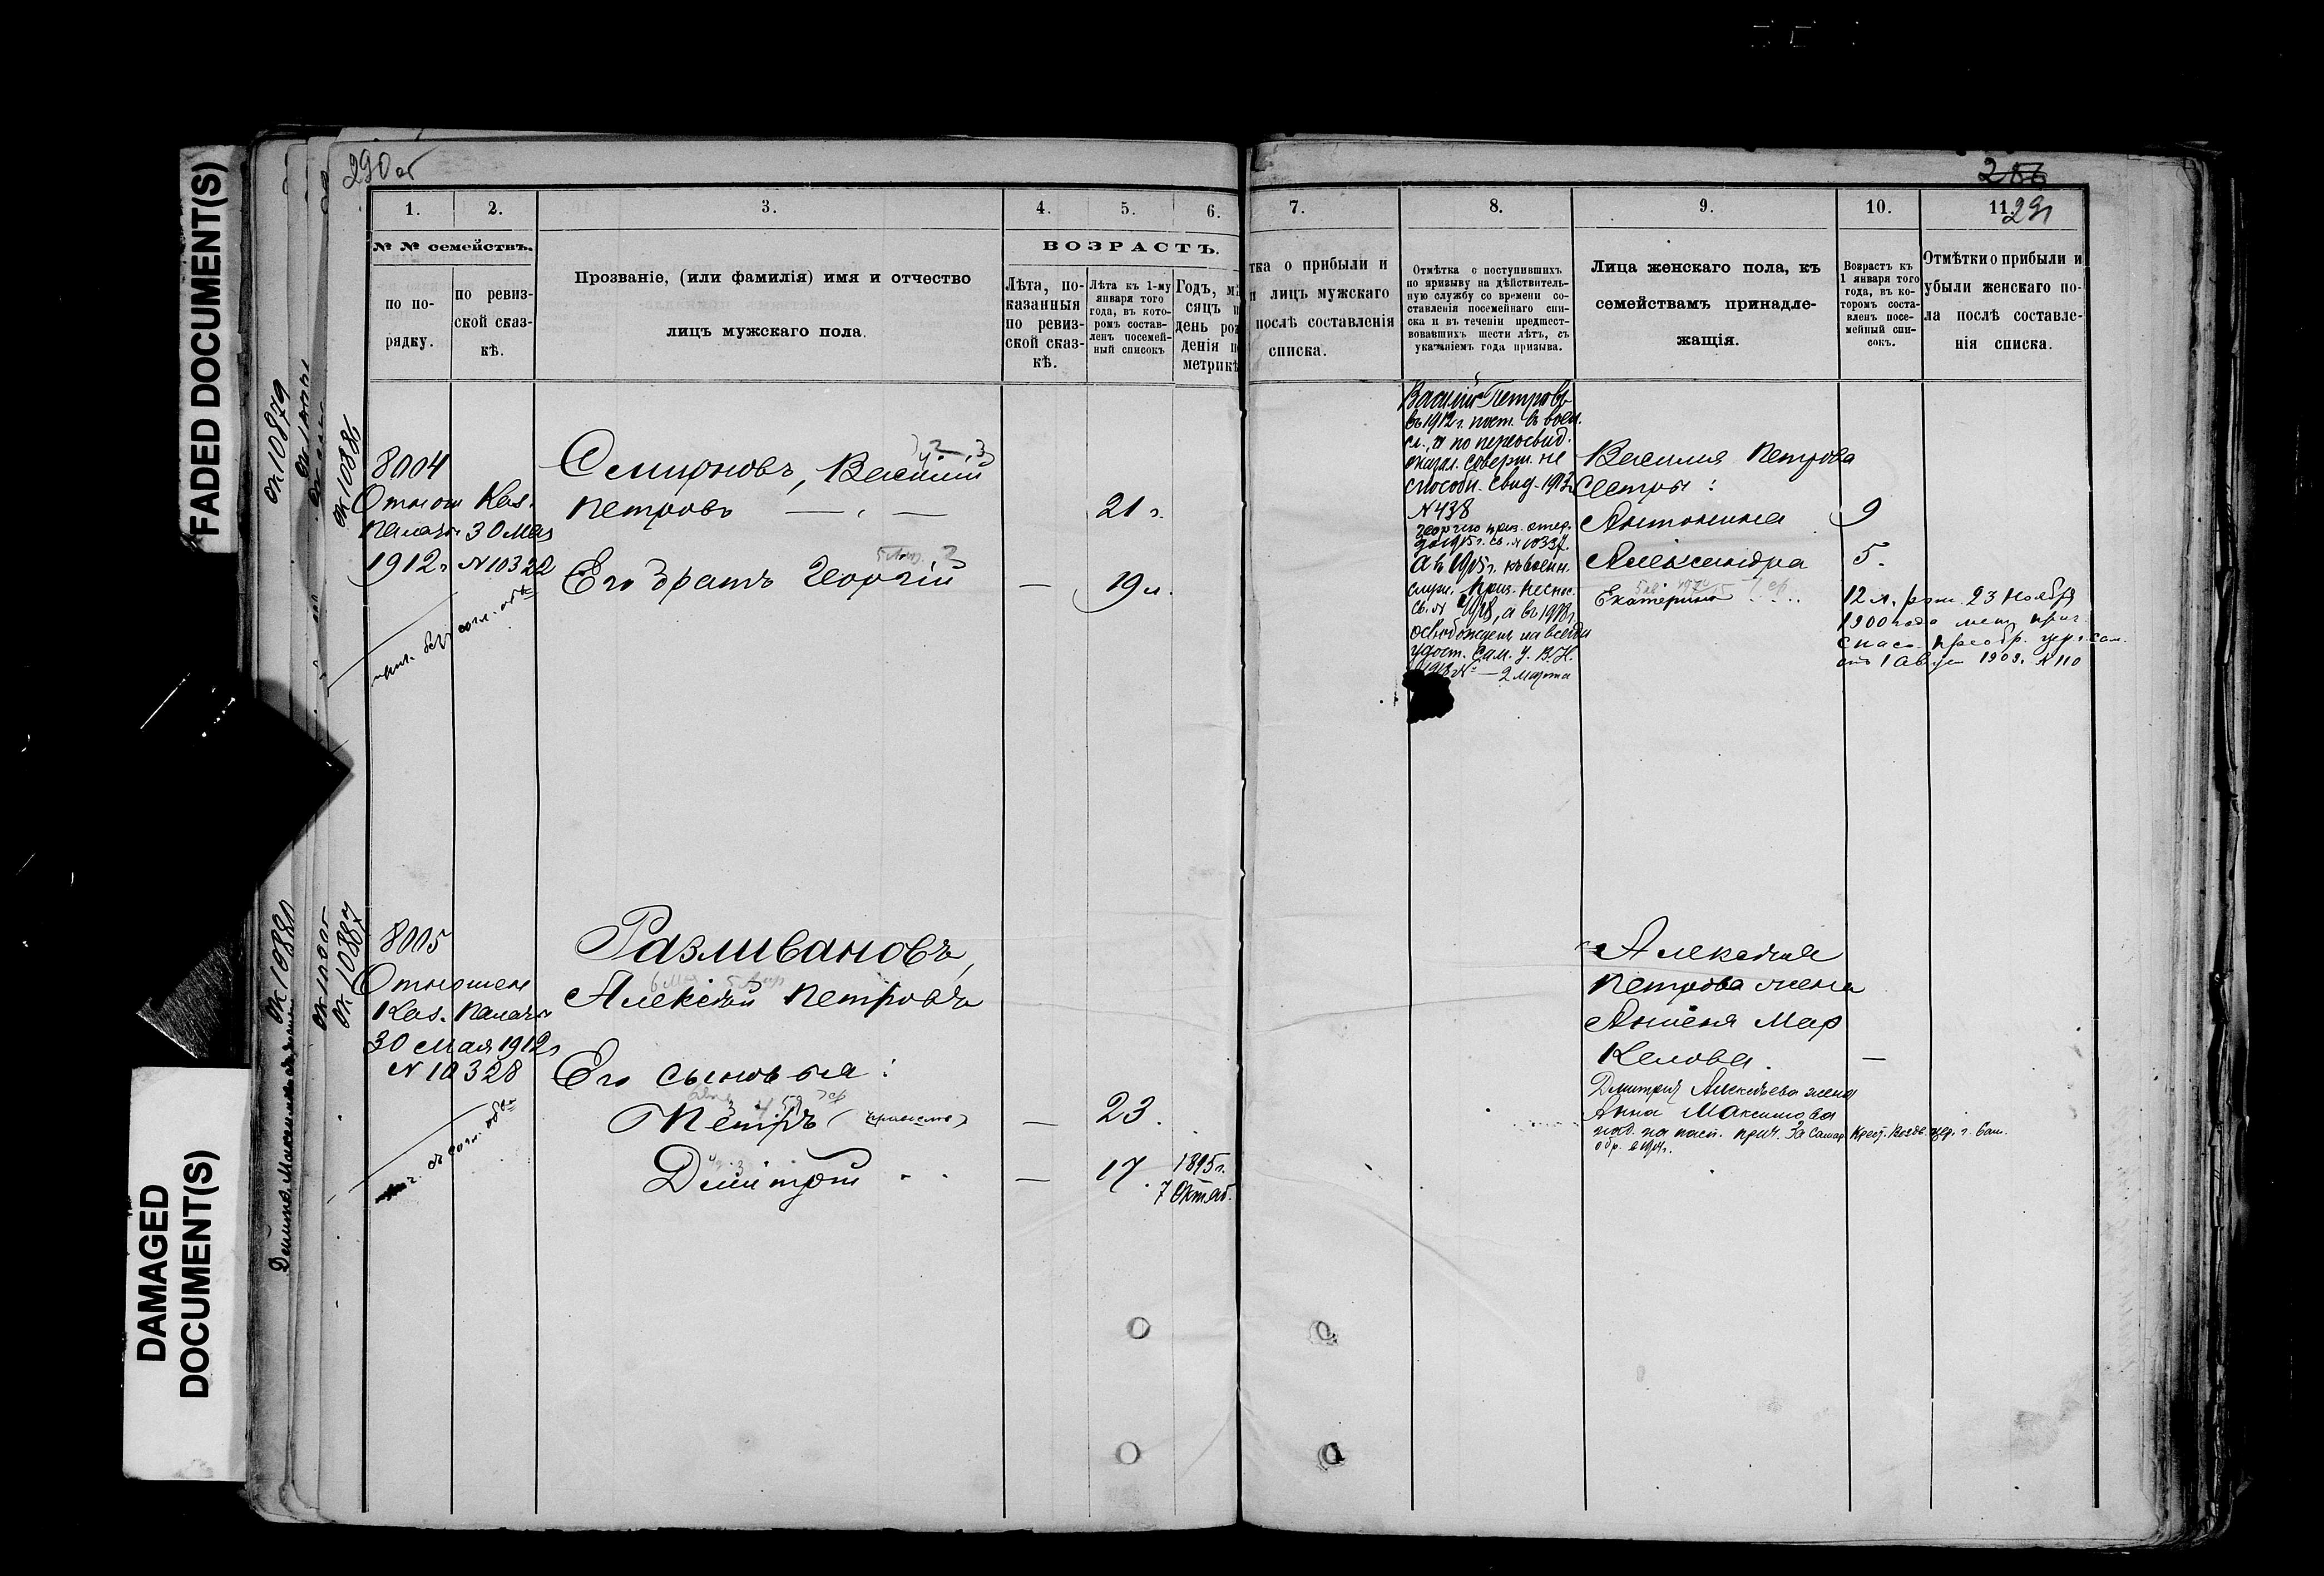 FADED DOCUMENT(S)
DAMAGED
DOCUMENT(S)
290 об
ок 10879
ок 10886
ок 10880
ок 10887
1.
2.
3.
4.
5.
6.
№ № семействъ.
по по-
рядку.
по ревиз-
ской сказ-
кѣ.
Прозваніе, (или фамилія) имя и отчество
лицъ мужскаго пола.
ВОЗРАСТЪ.
Лѣта, по-
казанныя
по ревиз-
ской сказ-
кѣ.
Лѣта къ 1-му
января того
года, въ кото-
ромъ состав-
ленъ посемей-
ный списокъ
Годъ, мѣ
сяцъ и
день рож
денія п
метрикѣ
8004
Отнош Каз.
Палаты 30 Мая
1912 г. N 10322
Смирновъ, Василій
Петровъ
21 г.
Его братъ Георгій
19 л.
8005
Отношен
Каз. Палаты
30 Мая 1912 г
N 10328
Разливановъ,
Алексѣй Петровъ
Его сыновья:
Петръ
23.
Димитрій
17.
1895 г.
7 Октяб.
286
291
7.
8.
9.
10.
11.
тка о прибыли и
и лицъ мужскаго
послѣ составленія
списка.
Отмѣтка о поступившихъ
по призыву на дѣйствитель-
ную службу со времени со-
ставленія посемейнаго спи-
ска и въ теченіи предшест-
вовавшихъ шести лѣтъ, съ
указаніемъ года призыва.
Лица женскаго пола, къ
семействамъ принадле-
жащія.
Возрастъ къ
1 января того
года, въ ко-
торомъ соста-
вленъ посе-
мейный спи-
сокъ.
Отмѣтки о прибыли и
убыли женскаго по-
ла послѣ составле-
нія списка.
Василій Петровъ
въ 1912 г. пост. въ воен.
сл., а по переосвид.
оказал. соверш. не
способн. свид. 1913 г
N 438
до 1915 г. св. N 10337.
а въ 1915 г. къ воен.
служ.
св. N а въ 1918 г
освобожденъ на всегда
удост. Сам. У. В. Н.
1918 № — 2 марта
Василія Петрова
Сестры:
Антонина
9
Александра
5.
Екатерина
12 л. род. 23 Ноября
1900 года
спасо преобр. цер. г. Сам.
отъ 1 Авг. 1909. N 110
Алексѣя
Петрова жена
Аксенія Мар
келова.
Дмитрія Алексѣева жена
Анна Максимова